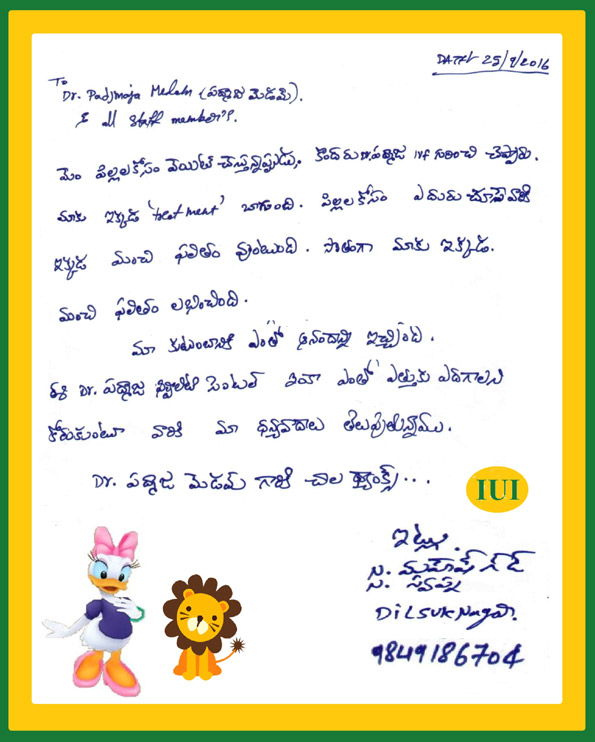 DATE 25/9/2016
To
Dr. Padjmaja Medam (పద్మాజ మెడమ్).
& all staff member's.
మెం పిల్లలకోసం వెయిట్ చేస్తున్నప్పుడు, కొందరు Dr. పద్మాజ IVF గురించి చెప్పారు.
మాకు ఇక్కడ 'treatment' బాగుంది. పిల్లల కోసం ఎదురు చూసేవారికి
ఇక్కడ మంచి ఫలితం వుంటుంది. మాకు ఇక్కడ.
మంచి ఫలితం లభించింది.
మా కుటుంబానికి ఎంతో ఆనందాన్ని ఇచ్చింది.
ఈ Dr. పద్మాజ ఫెర్టిలిటి సెంటర్ ఇంకా ఎంతో ఎత్తుకు ఎదగాలని
కోరుకుంటూ వారికి మా ధన్యవాదాలు తెలుపుతున్నాము.
Dr. పద్మాజ మెడమ్ గారికి చాల థ్యాంక్స్...
IUI
ఇట్లు.
స్వప్న
DILSUKNagar.
9849186704